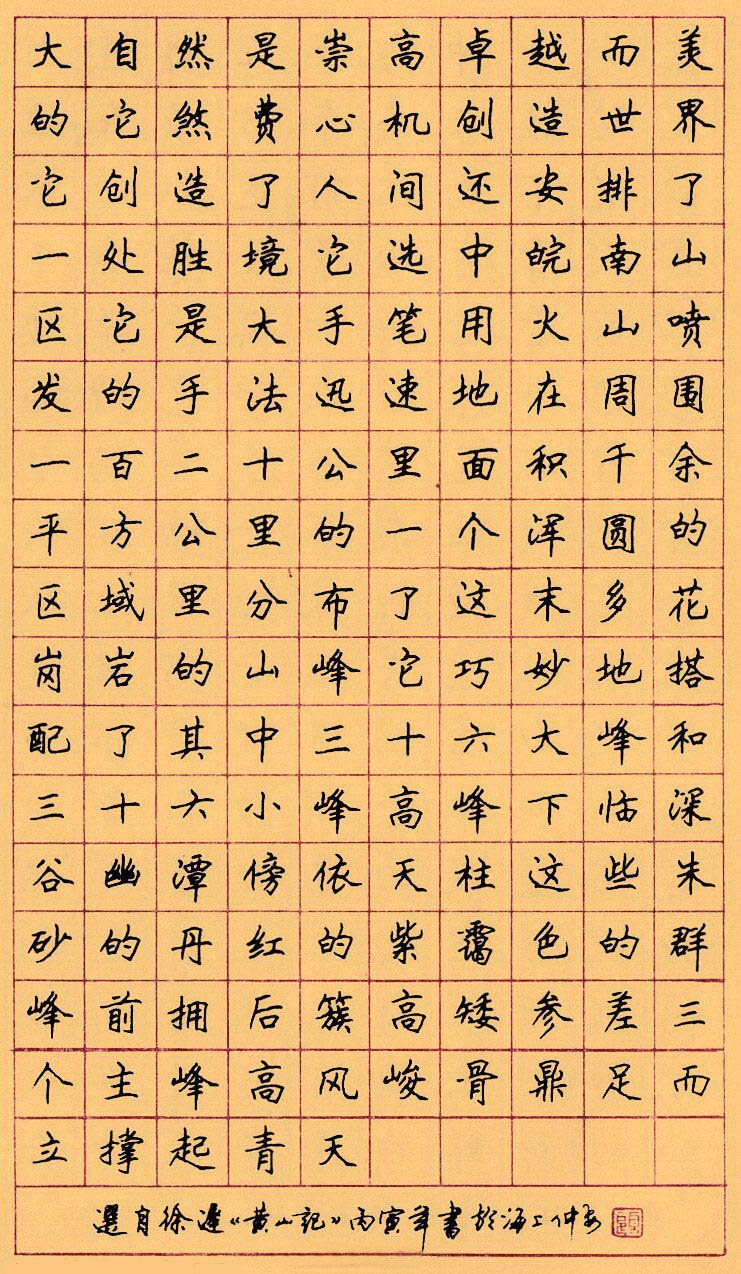 大自然是崇高卓越而美
的它煞费心机创造世界
它创造了人间还安排了
一处胜境它选中皖南山
区它是大手笔用火山喷
发的手法迅速地在周围
一百二十公里面积千余
平方公里的一个浑圆的
区域里分布了这末多花
岗岩的山峰它巧妙地搭
配了其中三十六大峰和
三十六小峰高峰下临深
谷幽潭傍依天柱这些朱
砂的丹红的紫霭色的群
峰前拥后簇高矮参差三
个主峰高风峻骨鼎足而
立撑起青天
選自徐遲《黄山記》丙寅年書於海上仲安